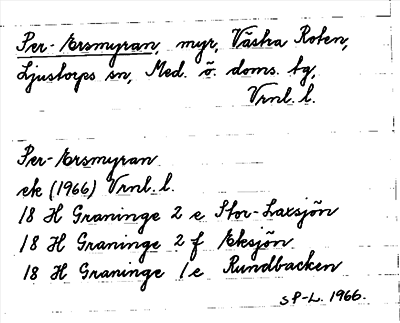 Per-Ersmyran, myr, Västra Roten,
Ljustorps sn, Med. ö. doms. tg,
Vrnl. l.
Per-Ersmyran
ek (1966) Vrnl. l.
18 H Graninge 2 e Stor-Laxsjön
18 H Graninge 2 f Eksjön
18 H Graninge 1 e Rundbacken
SP-L. 1966.